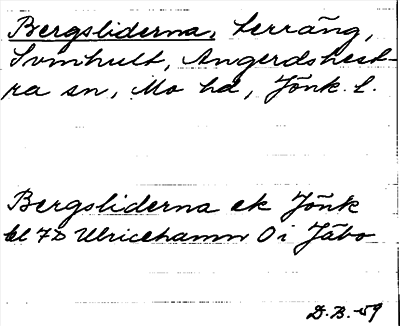 Bergsliderna, terräng,
Svinhult, Angerdshest-
ra sn, Mo hd, Jönk. l.
Bergsliderna ek Jönk
bl 7D Ulricehamn O i Jäbo
D.B.-59